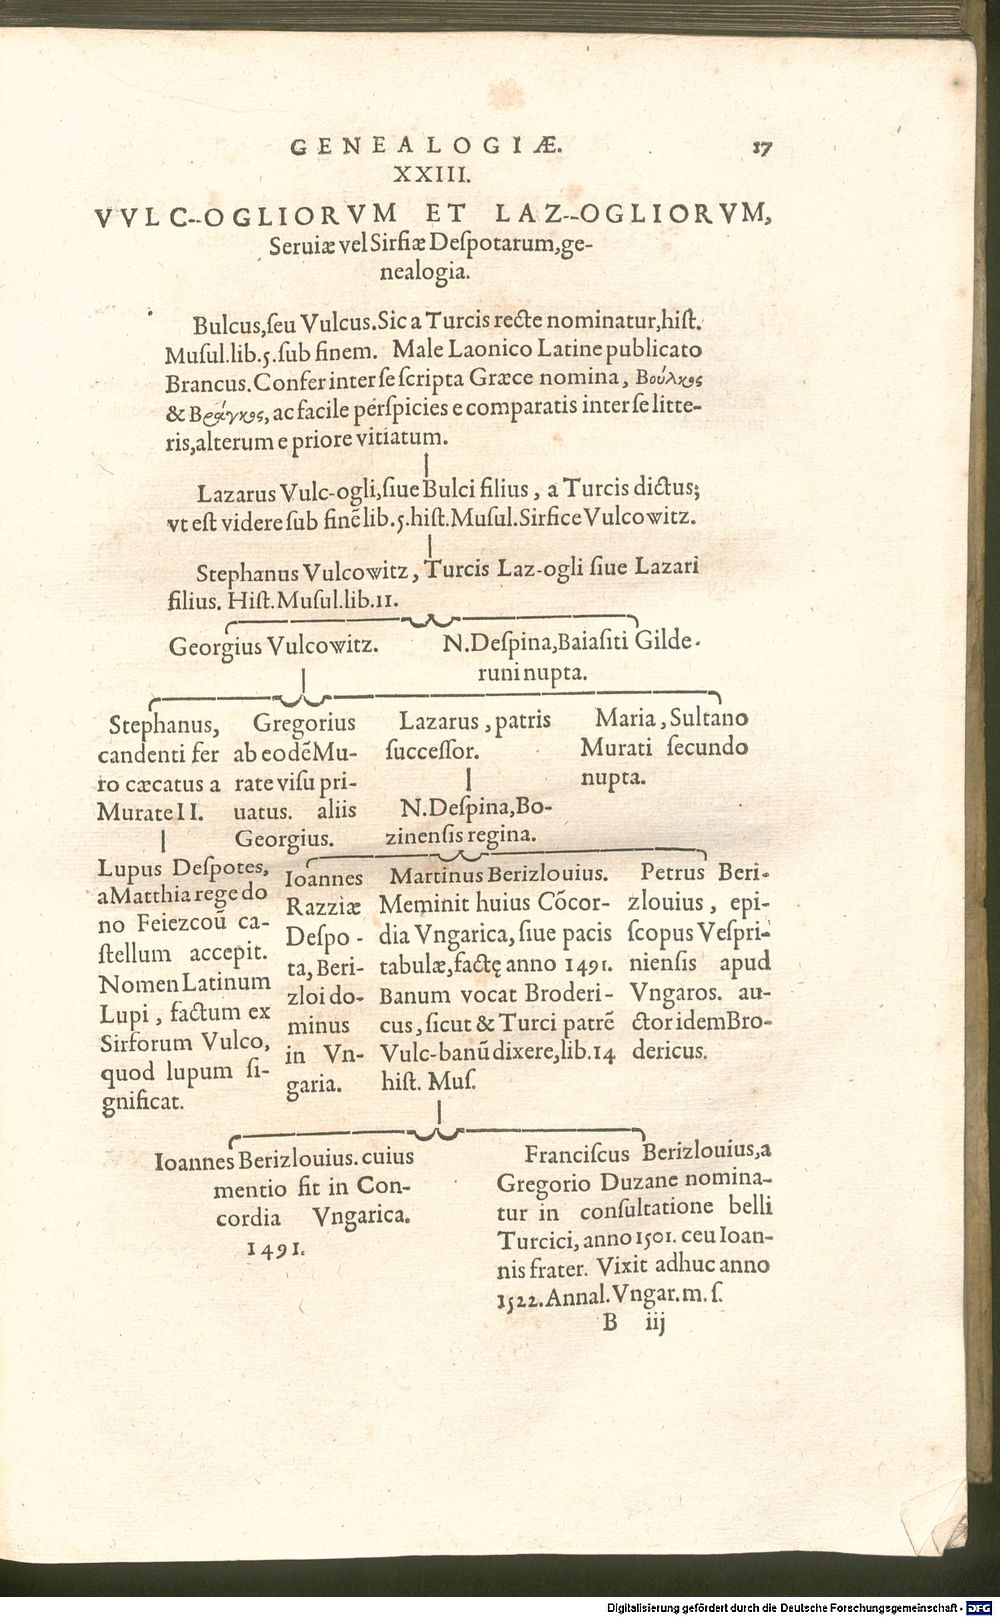 GENEALOGIÆ. 17
XXIII.
VVLC--OGLIORVM ET LAZ--OGLIORVM,
Seruiæ vel Sirfiæ Deſpotarum, ge-
nealogia.
Bulcus, ſeu Vulcus. Sic a Turcis recte nominatur, hiſt.
Muſul. lib. 5. ſub finem. Male Laonico Latine publicato
Brancus. Confer inter ſe ſcripta Græce nomina, Βούλκος
& Βράγκος, ac facile perſpicies e comparatis inter ſe litte-
ris, alterum e priore vitiatum.
Lazarus Vulc-ogli, ſiue Bulci filius, a Turcis dictus;
vt eſt videre ſub finē lib. 5. hiſt. Muſul. Sirfice Vulcowitz.
Stephanus Vulcowitz, Turcis Laz-ogli ſiue Lazari
filius. Hiſt. Muſul. lib. 11.
Georgius Vulcowitz.
N. Deſpina, Baiaſiti Gilde-
runi nupta.
Stephanus,
candenti fer
ro cæcatus a
Murate II.
Gregorius
ab eodē Mu-
rate viſu pri-
uatus. aliis
Georgius.
Lazarus, patris
ſucceſſor.
Maria, Sultano
Murati ſecundo
nupta.
N. Deſpina, Bo-
zinenſis regina.
Lupus Deſpotes,
a Matthia rege do
no Feiezcoū ca-
ſtellum accepit.
Nomen Latinum
Lupi, factum ex
Sirforum Vulco,
quod lupum ſi-
gnificat.
Ioannes
Razziæ
Deſpo-
ta, Beri-
zloi do-
minus
in Vn-
garia.
Martinus Berizlouius.
Meminit huius Cōcor-
dia Vngarica, ſiue pacis
tabulæ, factę anno 1491.
Banum vocat Broderi-
cus, ſicut & Turci patrē
Vulc-banū dixere, lib. 14
hiſt. Muſ.
Petrus Beri-
zlouius, epi-
ſcopus Veſpri-
nienſis apud
Vngaros. au-
ctor idem Bro-
dericus.
Ioannes Berizlouius. cuius
mentio fit in Con-
cordia Vngarica.
1491.
Franciſcus Berizlouius, a
Gregorio Duzane nomina-
tur in conſultatione belli
Turcici, anno 1501. ceu Ioan-
nis frater. Vixit adhuc anno
1522. Annal. Vngar. m. ſ.
B iij
Digitalisierung gefördert durch die Deutsche Forschungsgemeinschaft - DFG